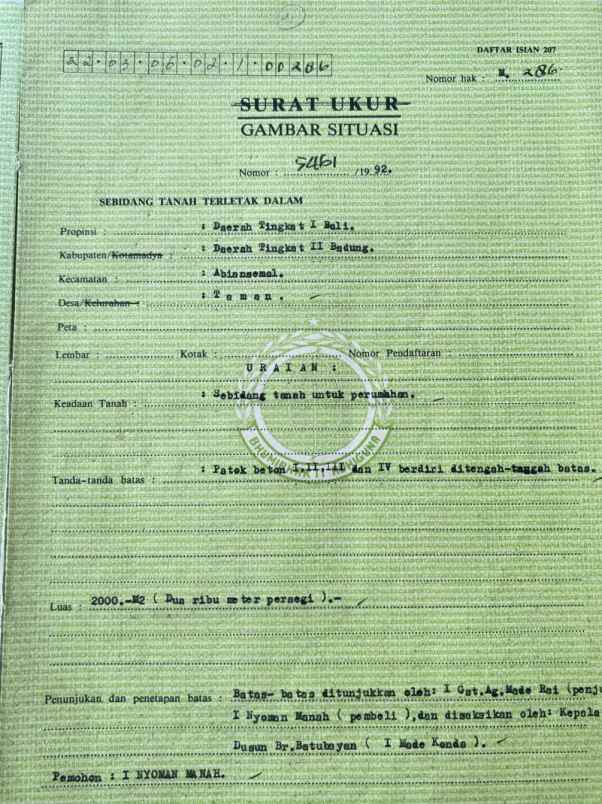 DAFTAR ISIAN 207
22.03.06.02.1.00286
Nomor hak : M. 286
SURAT UKUR
GAMBAR SITUASI
Nomor : 5461 /1992.
SEBIDANG TANAH TERLETAK DALAM
Propinsi : : Daerah Tingkat I Bali.
Kabupaten/Kotamadya : : Daerah Tingkat II Badung.
Kecamatan : : Abiansemal.
Desa/Kelurahan : : T a m a n .
Peta :
Lembar : Kotak : Nomor Pendaftaran :
U R A I A N :
Keadaan Tanah : : Sebidang tanah untuk perumahan.
BHUMI
GUNA
Tanda-tanda batas : : Patok beton I,II,III dan IV berdiri ditengah-tanggah batas.
Luas : 2000.-M2 ( Dua ribu meter persegi ).-
Penunjukan dan penetapan batas : Batas- batas ditunjukkan oleh: I Gst.Ag.Made Rai (penju
I Nyoman Manah ( pembeli ),dan disaksikan oleh: Kepala
Dusun Br.Batubayan ( I Made Konda ).
Pemohon : I NYOMAN MANAH.